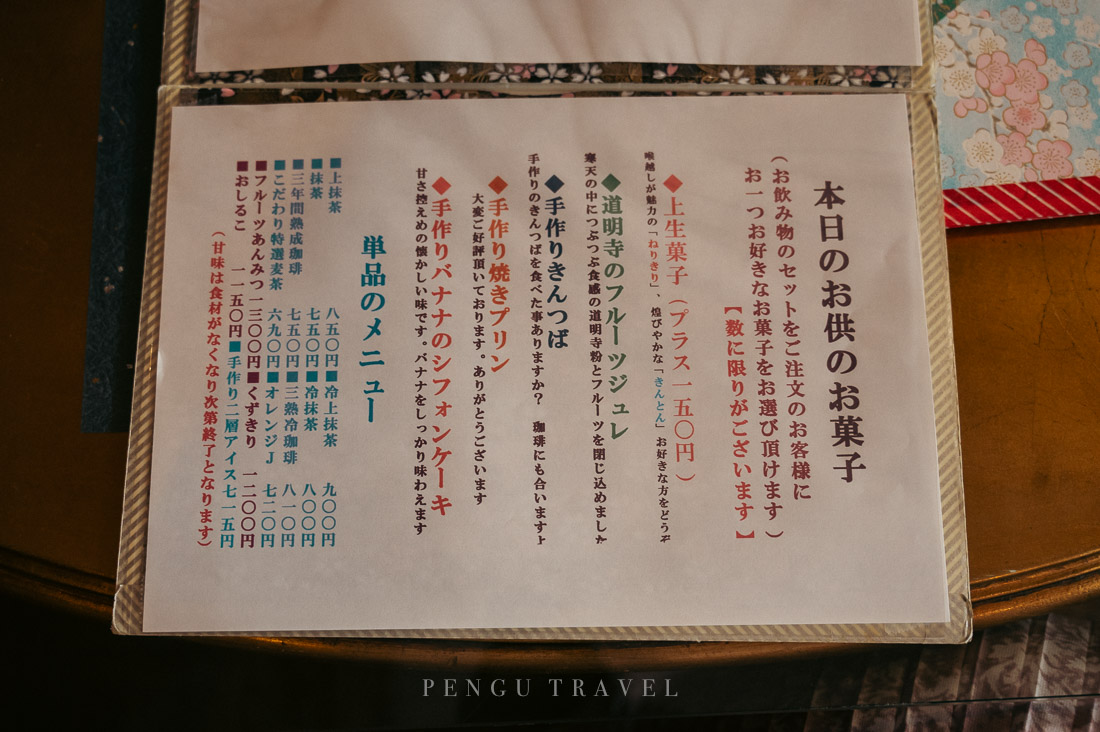 本日のお供のお菓子
（お飲み物のセットをご注文のお客様に
お一つお好きなお菓子をお選び頂けます）
【数に限りがございます】
◆上生菓子（プラス一五〇円）
喉越しが魅力の「ねりきり」、煌びやかな「きんとん」お好きな方をどうぞ
◆道明寺のフルーツジュレ
寒天の中につぶつぶ食感の道明寺粉とフルーツを閉じ込めました
◆手作りきんつば
手作りのきんつばを食べた事ありますか？　珈琲にも合いますよ
◆手作り焼きプリン
大変ご好評頂いております。ありがとうございます
◆手作りバナナのシフォンケーキ
甘さ控えめの懐かしい味です。バナナをしっかり味わえます
単品のメニュー
■上抹茶　八五〇円■冷上抹茶　九〇〇円
■抹茶　七五〇円■冷抹茶　八〇〇円
■三年間熟成珈琲　七五〇円■三熟冷珈琲　八一〇円
■こだわり特選麦茶　六九〇円■オレンジJ　七二〇円
■フルーツあんみつ一三〇〇円■くずきり　一二〇〇円
■おしるこ　一一五〇円■手作り二層アイス七一五円
（甘味は食材がなくなり次第終了となります）
PENGU TRAVEL